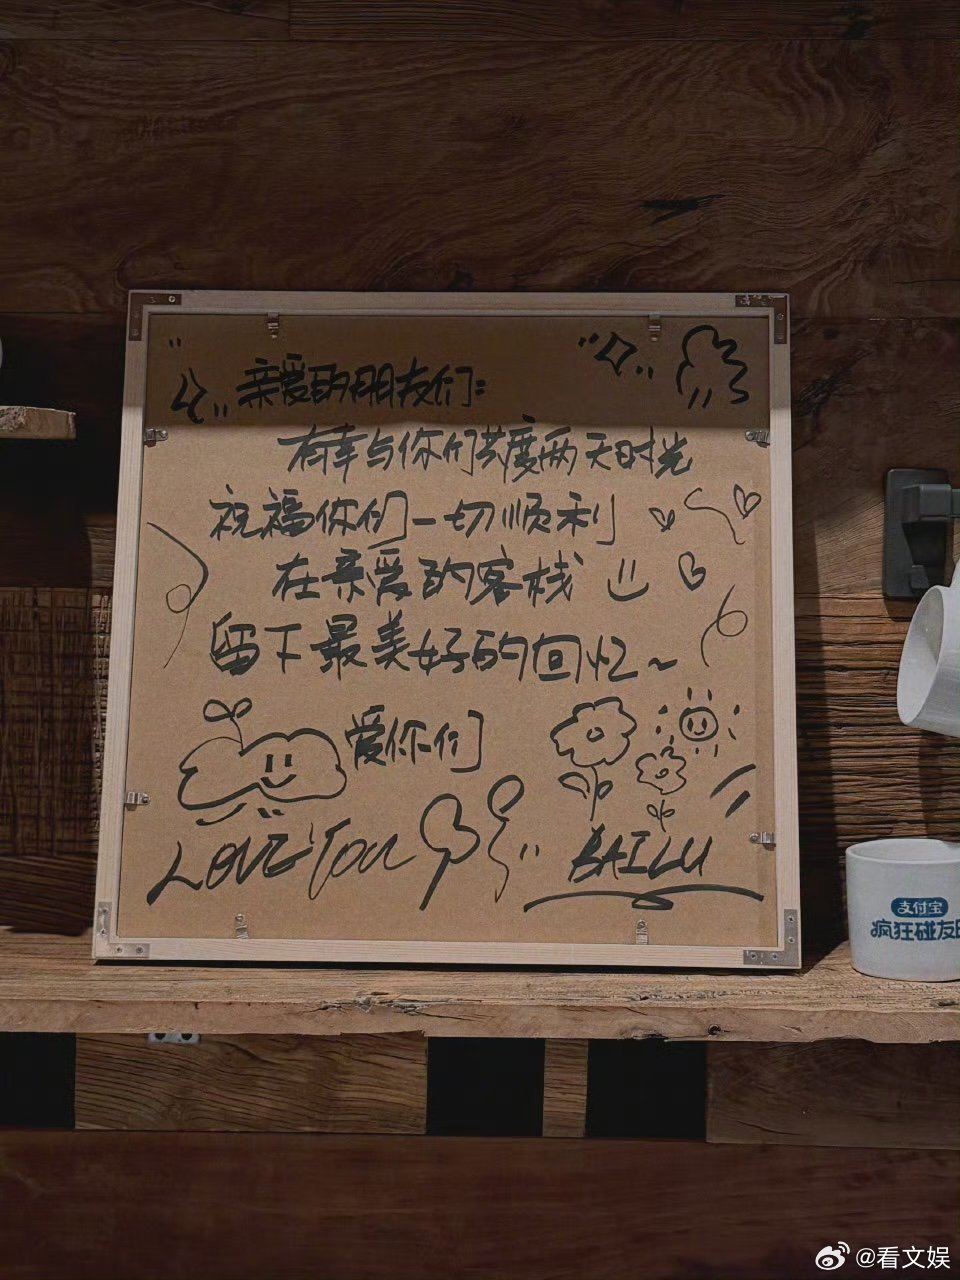 亲爱的朋友们：
有幸与你们共度两天时光
祝福你们一切顺利
在亲爱的客栈
留下最美好的回忆~
爱你们
LOVE You
BAILU
支付宝
疯狂碰友
@看文娱